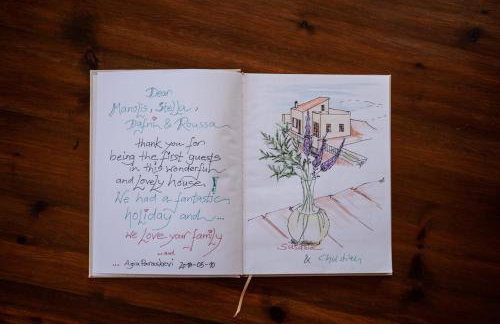 Dear
Manolis, Stella,
Dafnin & Roussa
thank you for
being the first guests
in this wonderful
and lovely house!
We had a fantastic
holiday and ...
we Love your family
... Agia Paraskevi 2018-05-10
&